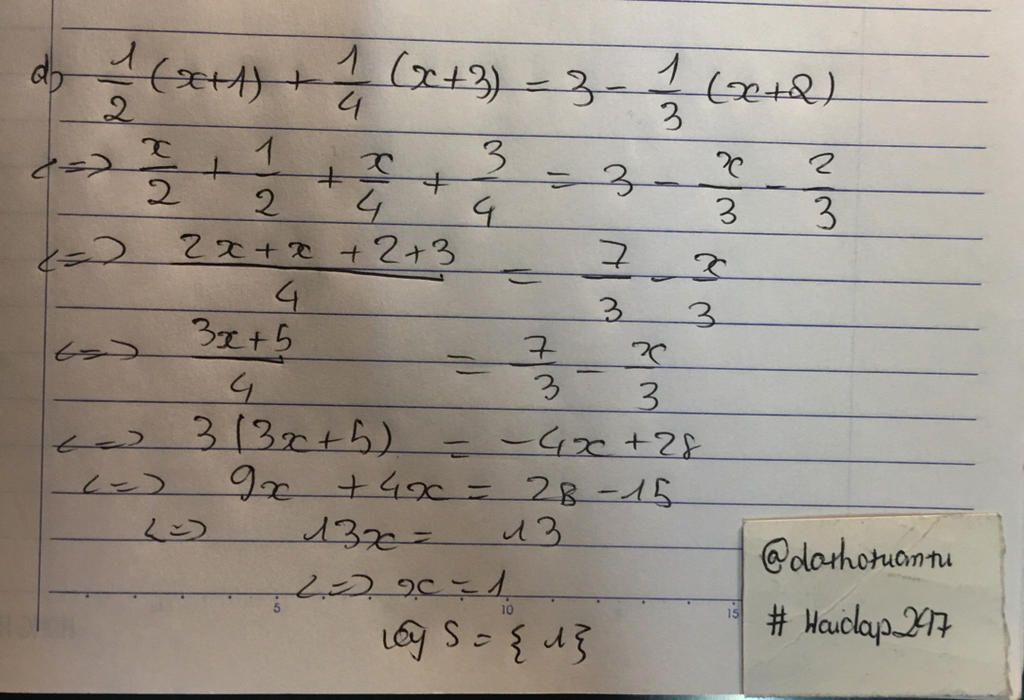 d) 1/2 (x+1) + 1/4 (x+3) = 3 - 1/3 (x+2)
<=> x/2 + 1/2 + x/4 + 3/4 = 3 - x/3 - 2/3
<=> (2x + x + 2 + 3)/4 = 7/3 - x/3
<=> (3x+5)/4 = 7/3 - x/3
<=> 3(3x+5) = -4x + 28
<=> 9x + 4x = 28 - 15
<=> 13x = 13
<=> x = 1
5 10 15
Vậy S = {1}
@dothotuantu
# Hoidap247